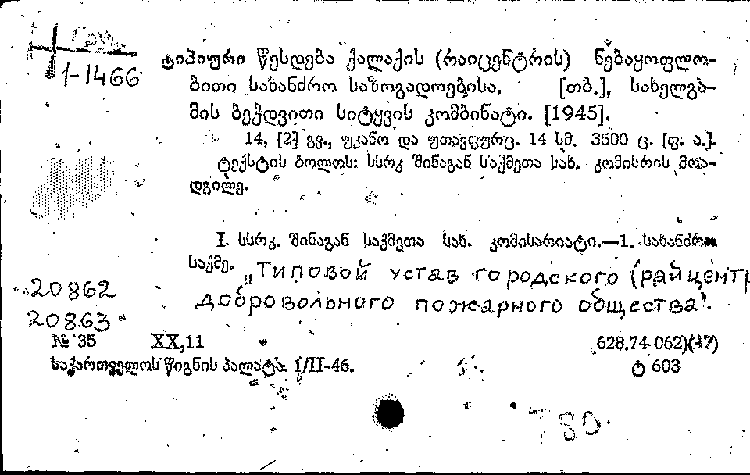 1-1466
ტიპიური წესდება ქალაქის (რაიცენტრის) ნებაყოფლო-
ბითი სახანძრო საზოგადოებისა. [თბ.], სახელგა-
მის ბეჭდვითი სიტყვის კომბინატი. [1945].
14, [2] გვ., უკანო და უთავფურც. 14 სმ. 3500 ც. [ფ. ა.].
ტექსტის ბოლოს: სსრკ შინაგან საქმეთა სახ. კომისრის მოა-
დგილე.
I. სსრკ. შინაგან საქმეთა სახ. კომისარიატი.—1. სახანძრო
საქმე. „Типовой устав городского (райцентр
добровольного пожарного общества".
20862
20863
№ 35 XX,11 628.74-062)(47)
საქართველოს წიგნის პალატა. 1/II-46. ტ 603
T80